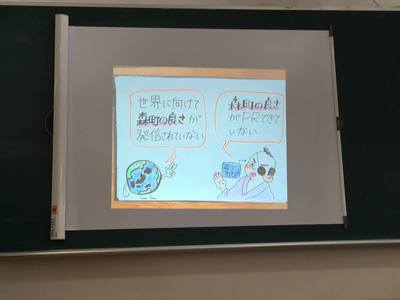 世界に向けて
森町の良さが
発信されていない
森町の良さ
がPRできて
いない